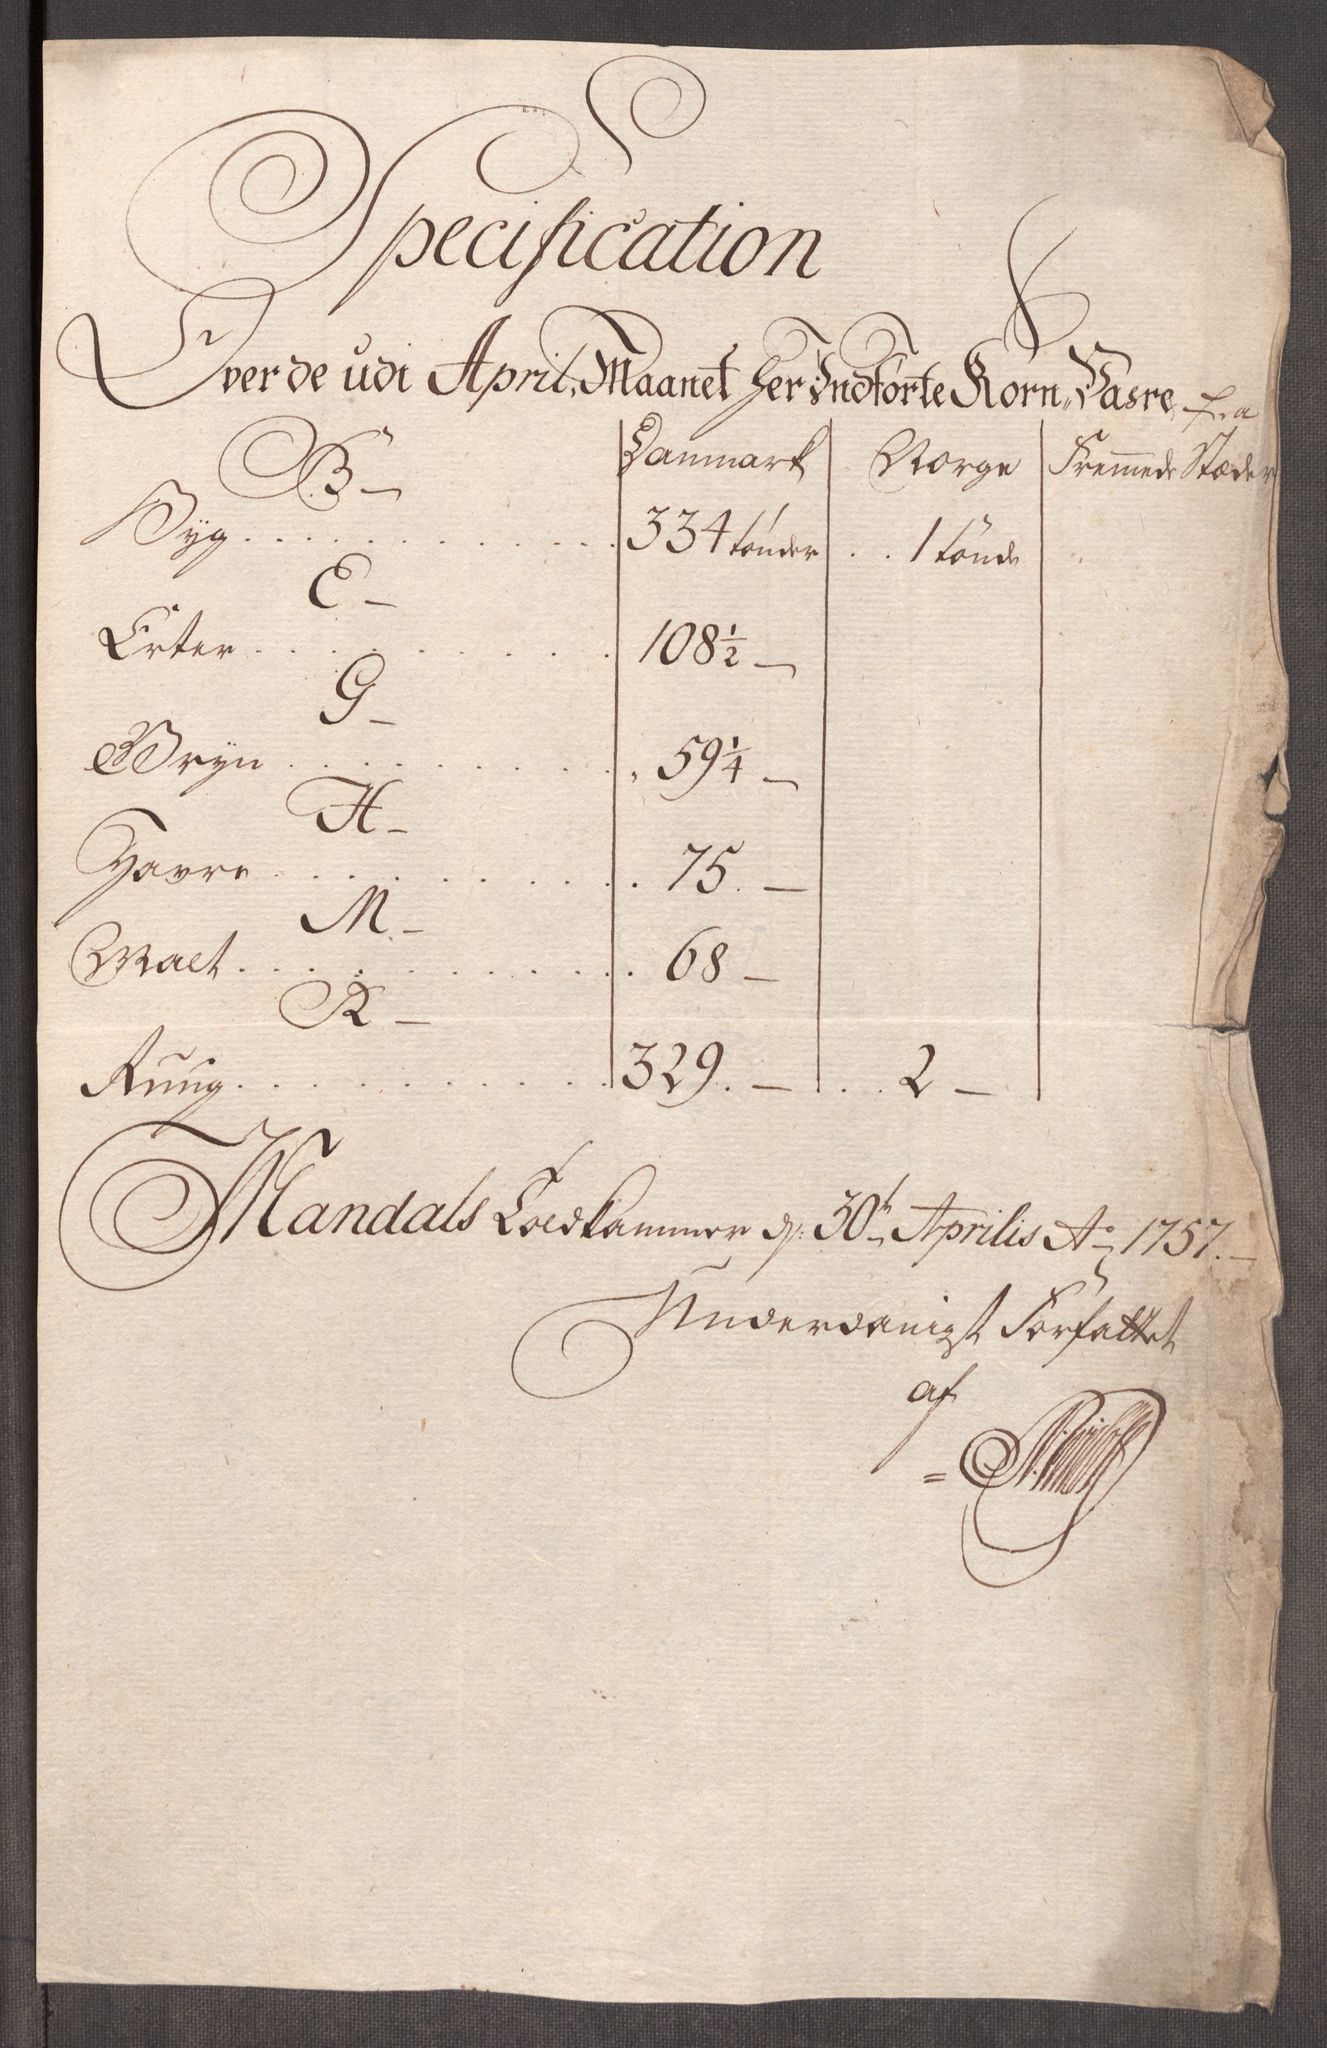 Specification
Over de udi April, Maanet her Indførte Korn-Vasre, fra
Danmark Norge Fremmede Stæder
B-
Byg 334 tønder 1 tønde
E-
Erter 108½ -
G-
Gryn 59¼ -
H-
Havre 75. -
M-
Malt 68 -
R-
Rüüg 329. - 2 -
Mandals Toldkammer d: 30t Aprilis Ao 1757.
Underdanigst Forfattet
af